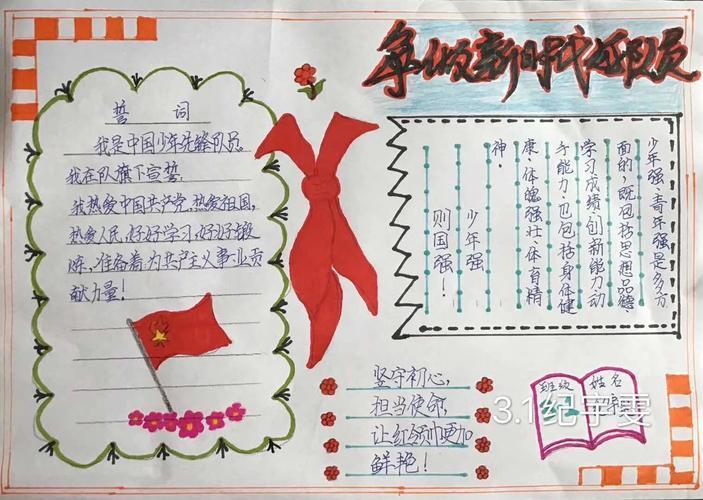 争做新时代好队员
誓词
我是中国少年先锋队员。
我在队旗下宣誓
我热爱中国共产党,热爱祖国,
热爱人民,好好学习,好好锻
炼,准备着:为共产主义事业贡
献力量!
少年强、青年强是多方
面的,既包括思想品德、
学习成绩、创新能力动
手能力,也包括身体健
康、体魄强壮、体育精
神。
少年强
则国强!
坚守初心,
担当使命,
让红领巾更加
鲜艳!
班级
姓名
3.1纪宇雯